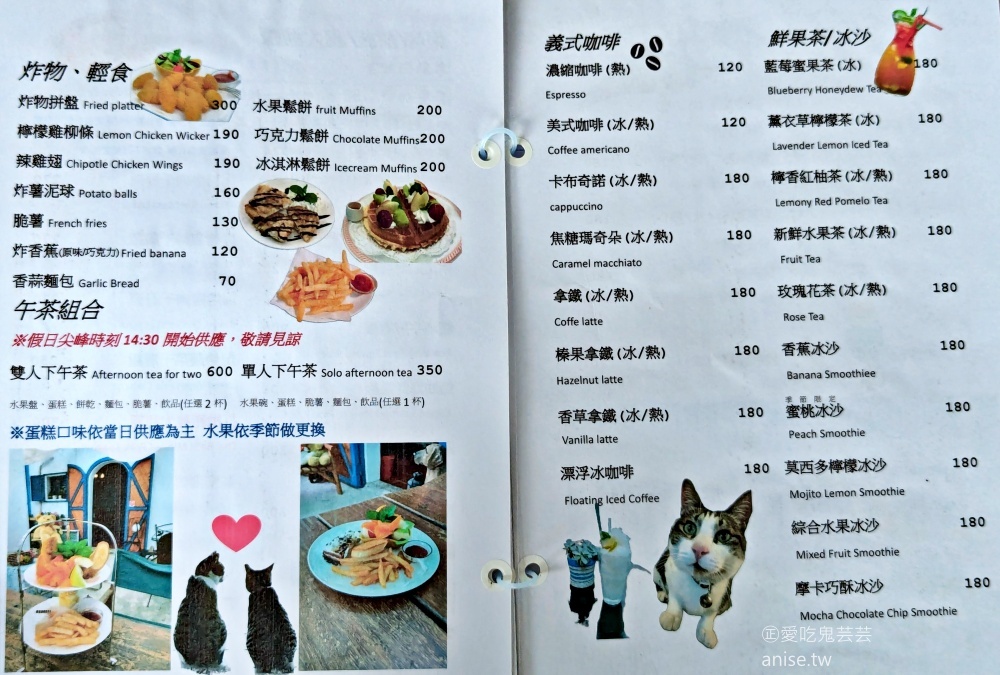 炸物、輕食
炸物拼盤 Fried platter 300
檸檬雞柳條 Lemon Chicken Wicker 190
辣雞翅 Chipotle Chicken Wings 190
炸薯泥球 Potato balls 160
脆薯 French fries 130
炸香蕉(原味/巧克力) Fried banana 120
香蒜麵包 Garlic Bread 70
水果鬆餅 fruit Muffins 200
巧克力鬆餅 Chocolate Muffins 200
冰淇淋鬆餅 Icecream Muffins 200
午茶組合
※假日尖峰時刻 14:30 開始供應，敬請見諒
雙人下午茶 Afternoon tea for two 600 單人下午茶 Solo afternoon tea 350
水果盤、蛋糕、餅乾、麵包、脆薯、飲品(任選 2 杯) 水果碗、蛋糕、脆薯、麵包、飲品(任選 1 杯)
※蛋糕口味依當日供應為主 水果依季節做更換
義式咖啡
濃縮咖啡 (熱) 120
Espresso
美式咖啡 (冰/熱) 120
Coffee americano
卡布奇諾 (冰/熱) 180
cappuccino
焦糖瑪奇朵 (冰/熱) 180
Caramel macchiato
拿鐵 (冰/熱) 180
Coffe latte
榛果拿鐵 (冰/熱) 180
Hazelnut latte
香草拿鐵 (冰/熱) 180
Vanilla latte
漂浮冰咖啡 180
Floating Iced Coffee
鮮果茶/冰沙
藍莓蜜果茶 (冰) 180
Blueberry Honeydew Tea
薰衣草檸檬茶 (冰) 180
Lavender Lemon Iced Tea
檸香紅柚茶 (冰/熱) 180
Lemony Red Pomelo Tea
新鮮水果茶 (冰/熱) 180
Fruit Tea
玫瑰花茶 (冰/熱) 180
Rose Tea
香蕉冰沙 180
Banana Smoothiee
季節限定
蜜桃冰沙 180
Peach Smoothie
莫西多檸檬冰沙 180
Mojito Lemon Smoothie
綜合水果冰沙 180
Mixed Fruit Smoothie
摩卡巧酥冰沙 180
Mocha Chocolate Chip Smoothie
㊣愛吃鬼芸芸
anise.tw